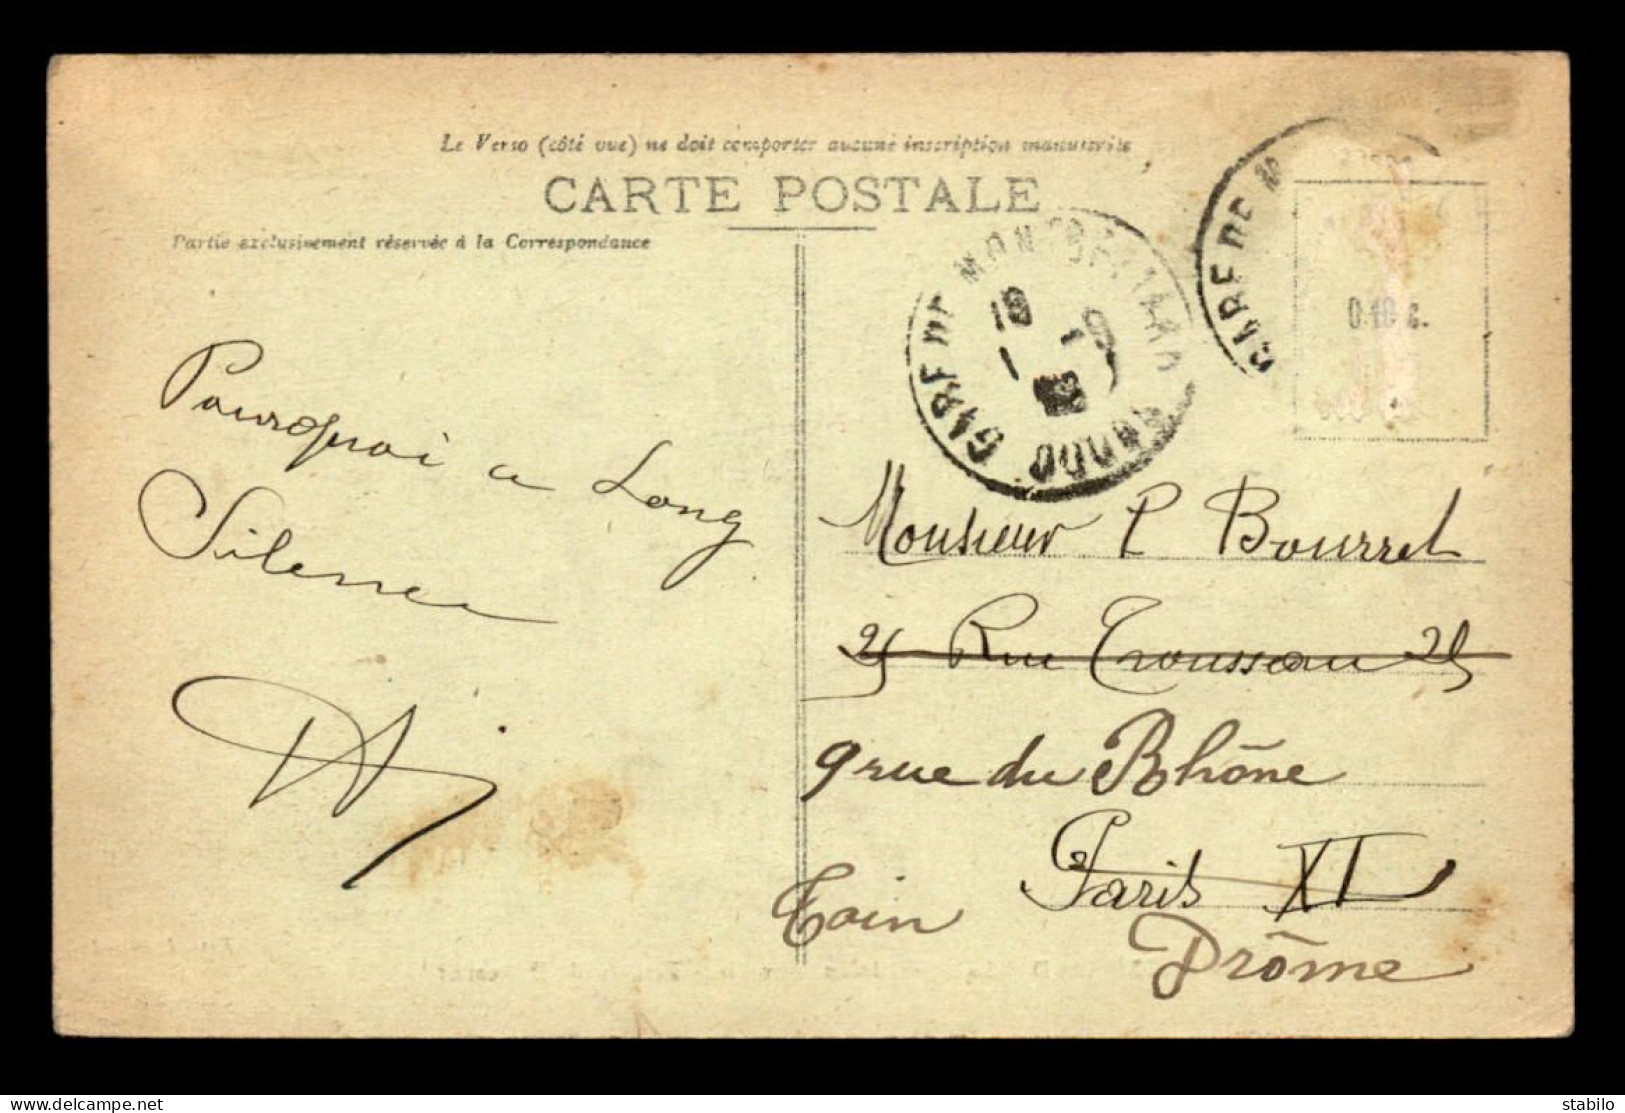 Le Verso (côté vue) ne doit comporter aucune inscription manuscrite
CARTE POSTALE
Partie exclusivement réservée à la Correspondance
GARE DE
GARE DE M
18
0.10 c.
Pourquoi ce Long
Silence
Monsieur P Bourret
25 Rue Trousseau 25
9 rue du Rhône
Paris XI
Tain
Drôme
delcampe.net
stabilo